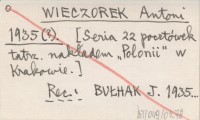 WIECZOREK Antoni
1935(?). [Seria 22 pocztówek
tatrz. nakładem „Polonii" w
Krakowie.]
Rec.: BUŁHAK J. 1935...